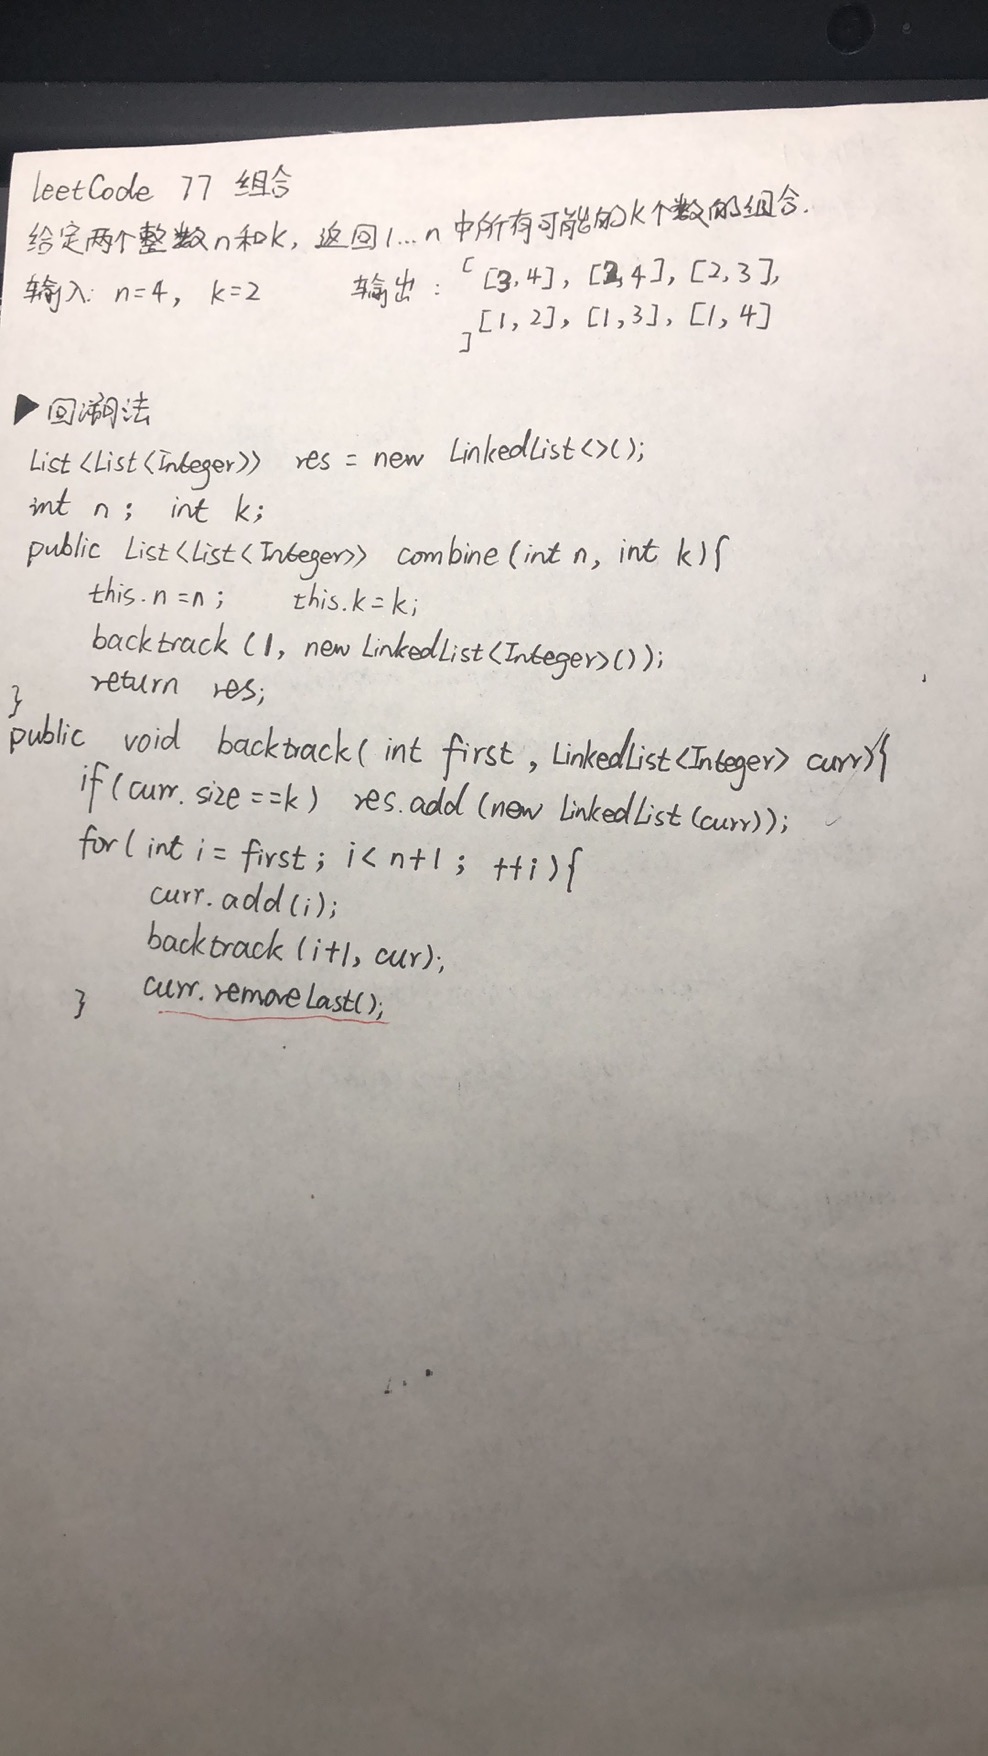 leetCode 77 组合
给定两个整数n和k, 返回1...n中所有可能的k个数的组合.
输入: n=4, k=2 输出: [ [3,4], [2,4], [2,3],
[1,2], [1,3], [1,4]
]
▶ 回溯法
List<List<Integer>> res = new LinkedList<>();
int n; int k;
public List<List<Integer>> combine(int n, int k){
this.n=n; this.k=k;
backtrack(1, new LinkedList<Integer>());
return res;
}
public void backtrack( int first, LinkedList<Integer> curr){
if(curr.size==k) res.add(new LinkedList(curr));
for( int i = first; i<n+1; ++i){
curr.add(i);
backtrack(i+1, cur);
curr.removeLast();
}